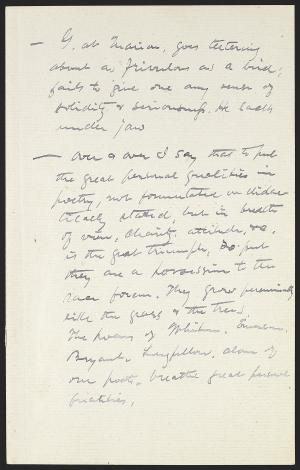 — G. at Marion, goes teetering
about as frivolous as a bird;
fails to give one any sense of
solidity & seriousness. He lacks
under jaw
— Over & over I say that to put
the great personal qualities in
poetry, not formulated or didac-
tically stated, but in breadth
of view, charity, attitude, &c.
is the great triumph, so put
they are a possession to the
race forever. They grow perennially
like the grass & the trees.
The poems of Whitman, Emerson,
Bryant, Longfellow, alone of
our poets, breathe great personal
qualities.